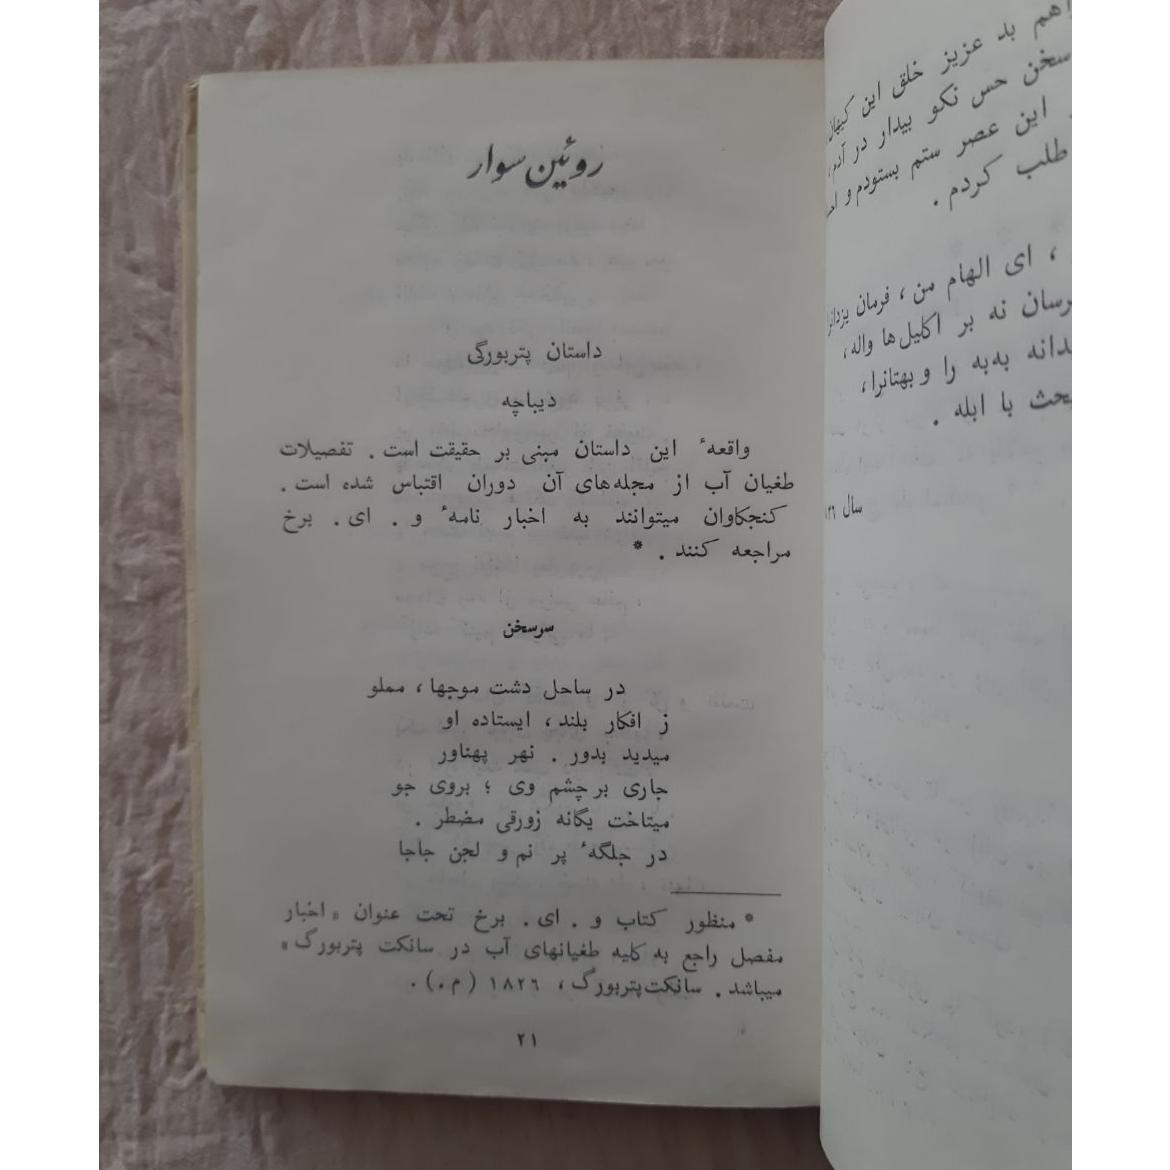 روئین سوار
داستان پتربورگی
دیباچه
واقعهٔ این داستان مبنی بر حقیقت است . تفصیلات
طغیان آب از مجله‌های آن دوران اقتباس شده است .
کنجکاوان میتوانند به اخبار نامهٔ و . ای . برخ
مراجعه کنند . *
سرسخن
در ساحل دشت موجها ، مملو
ز افکار بلند ، ایستاده او
میدید بدور . نهر پهناور
جاری بر چشم وی ؛ بروی جو
میتاخت یگانه زورقی مضطر .
در جلگهٔ پر نم و لجن جاجا
* منظور کتاب و . ای . برخ تحت عنوان « اخبار
مفصل راجع به کلیه طغیانهای آب در سانکت پتربورگ »
میباشد . سانکت‌پتربورگ ، ۱۸۲۶ ( م . ) .
۲۱
هم بد عزیز خلق این
سخن حس نکو بیدار در آدم ،
این عصر ستم بستودم و
طلب کردم .
، ای الهام من ، فرمان
نه بر اکلیل‌ها واله ،
به‌به را و بهتانرا ،
با ابله .
سال